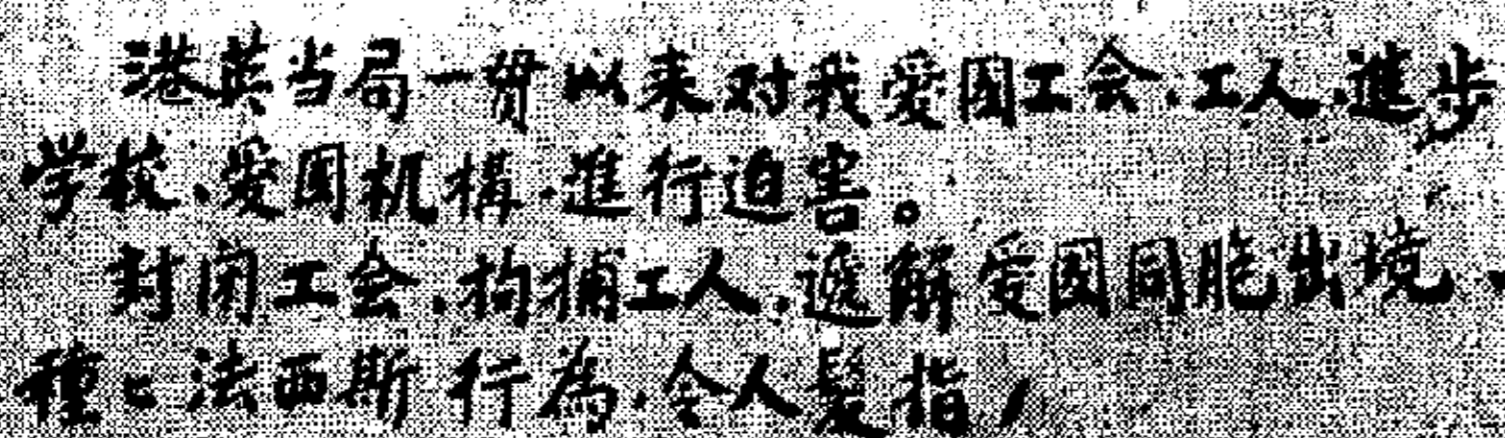 港英当局一贯以来对我爱国工会、工人、進步
学校、爱国机構、進行迫害。
封闭工会、拘捕工人、遞解爱国同胞出境、
種々法西斯行為、令人髮指，